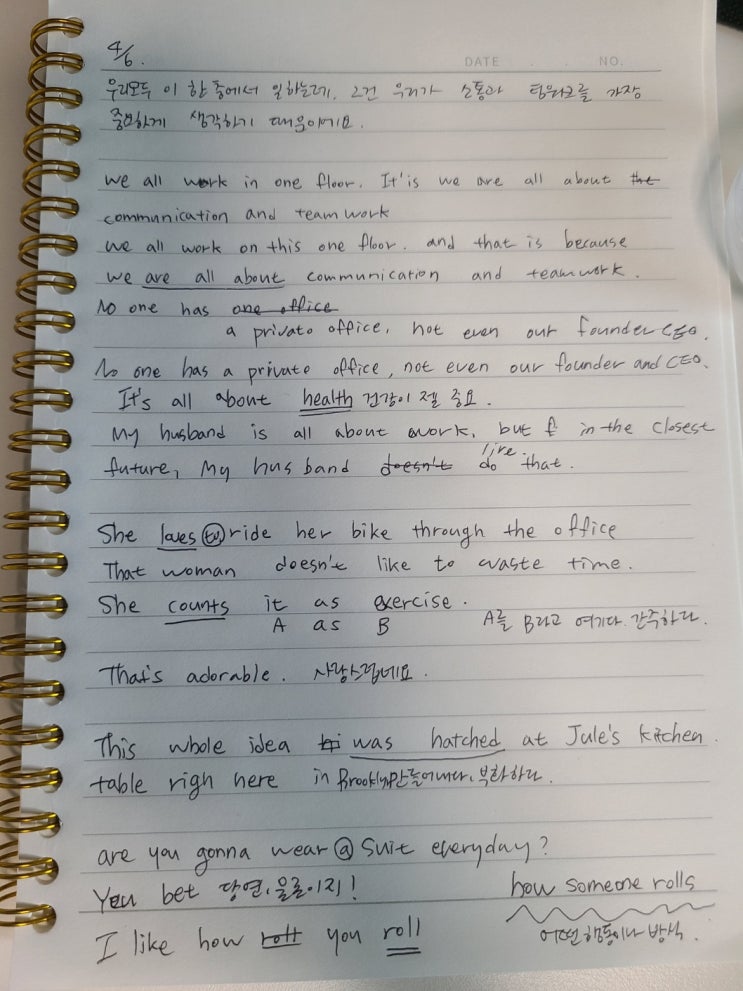 4/6.
DATE . . NO.
우리모두 이 한 층에서 일하는데, 그건 우리가 소통과 팀워크를 가장
중요하게 생각하기 때문이에요.
We all work in one floor. It'is we are all about the
communication and teamwork
we all work on this one floor. and that is because
we are all about communication and teamwork.
No one has one office
a private office, not even our founder CEO.
No one has a private office, not even our founder and CEO.
It's all about health 건강이 젤 중요.
My husband is all about work, but in the closest
future, My husband doesn't do like that.
She loves to ride her bike through the office
That woman doesn't like to waste time.
She counts it as exercise.
A as B A를 B라고 여기다. 간주하다.
That's adorable. 사랑스럽네요.
This whole idea was hatched at Jule's kitchen
table righ here in Brooklyn 만들어내다, 부화하다.
are you gonna wear a suit everyday?
You bet 당연, 물론이지!
how someone rolls
I like how roll you roll
어떤 행동이나 방식.